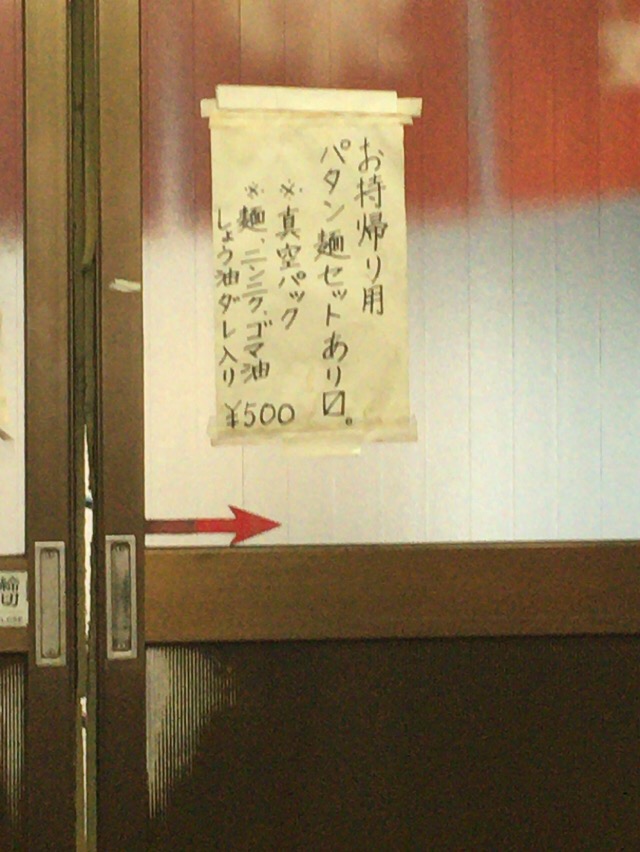 お持帰り用
パタン麺セットあり〼。
※真空パック
※麺、ニンニク、ゴマ油
しょう油ダレ入り
¥500
締切